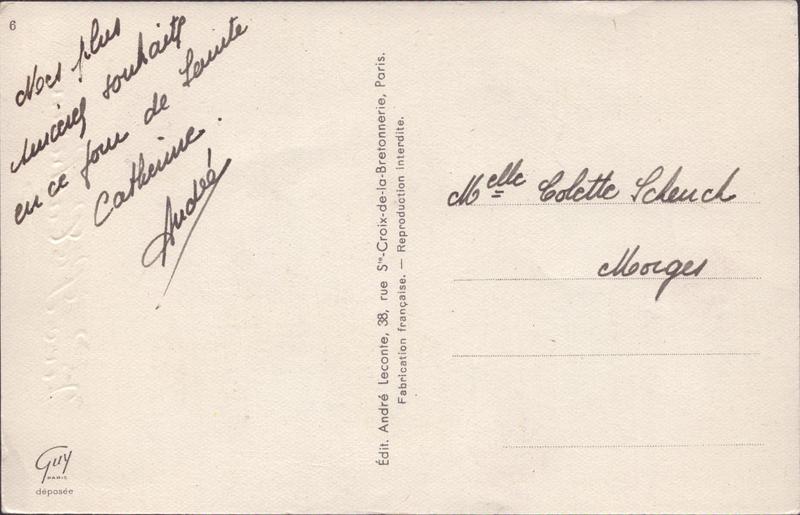 6
Nos plus
sincères souhaits
en ce jour de Sainte
Catherine.
André
Édit. André Leconte, 38, rue Ste-Croix-de-la-Bretonnerie, Paris.
Fabrication française. — Reproduction interdite.
Melle Colette Schenck
Morges
Guy
PARIS
déposée